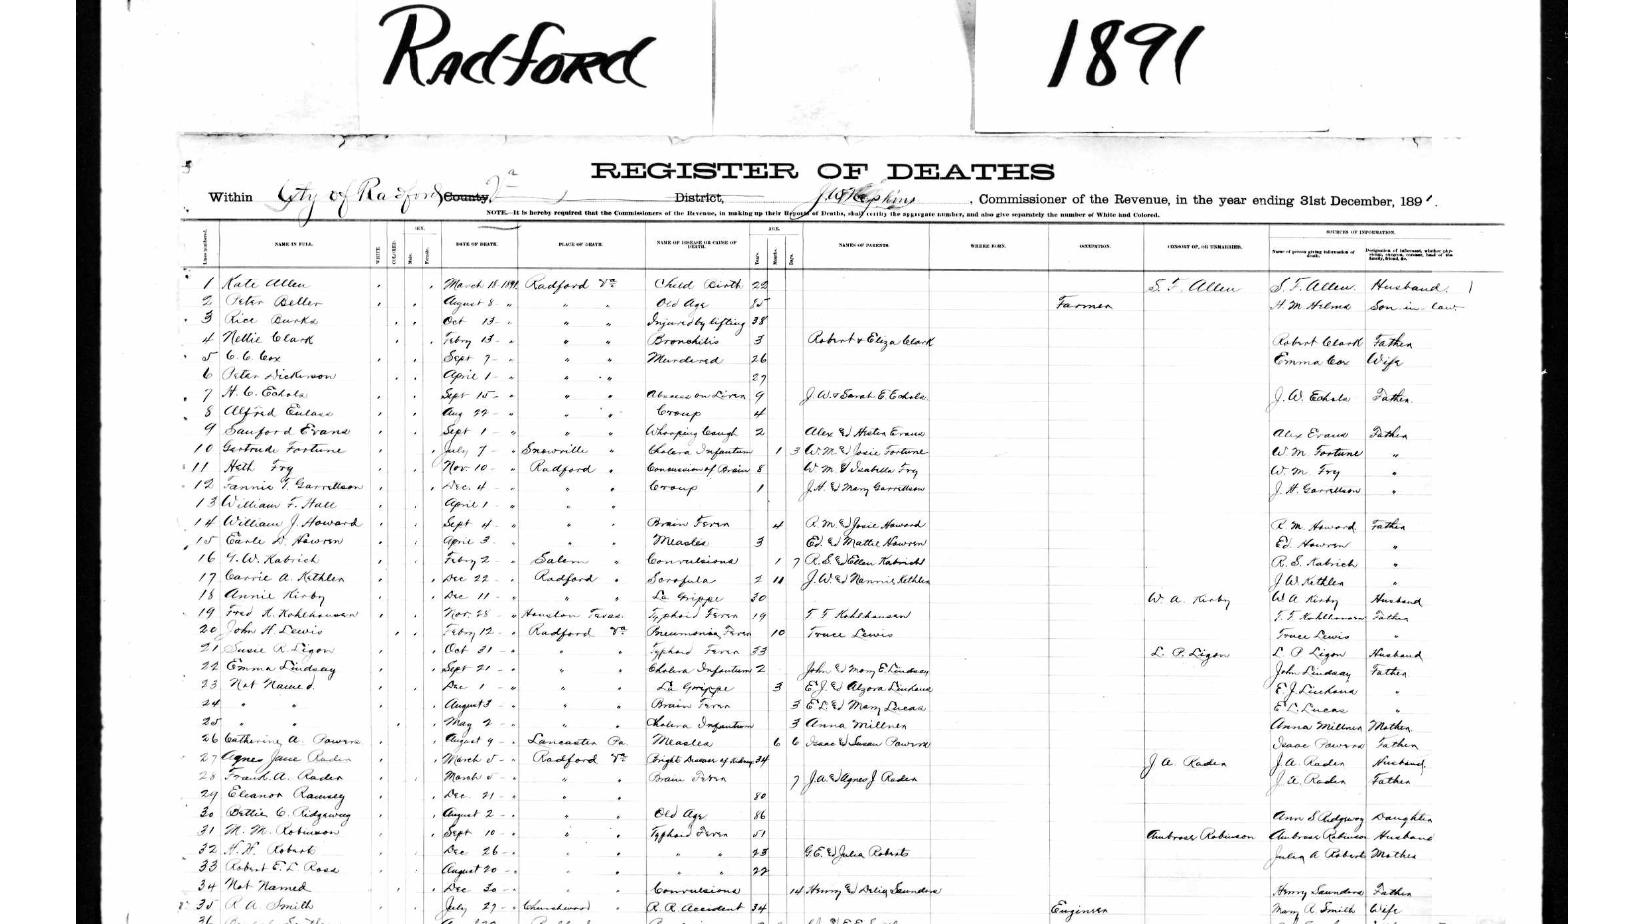 RADFORD
1891
REGISTER OF DEATHS
Within City of Radford County, Va District, J. W. Hopkins, Commissioner of the Revenue, in the year ending 31st December, 1891.
NOTE.—It is hereby required that the Commissioners of the Revenue, in making up their Reports of Deaths, shall certify the aggregate number, and also give separately the number of White and Colored.
SEX. AGE. SOURCES OF INFORMATION.
Lines numbered. NAME IN FULL. WHITE COLORED. Male. Female. DATE OF DEATH. PLACE OF DEATH. NAME OF DISEASE OR CAUSE OF DEATH. Years. Months. Days. NAMES OF PARENTS. WHERE BORN. OCCUPATION. CONSORT OF, OR UNMARRIED. Name of person giving information of death. Designation of informant, whether physician, surgeon, coroner, head of the family, friend, &c.
1 Kate Allen March 18-1891 Radford Va Child Birth 22 S. F. Allen S. F. Allen Husband
2 Peter Beller August 8 - " " " Old Age 85 Farmer H. M. Helms Son in law
3 Rice Burks Oct 13 - " " " Injured by lifting 38
4 Nettie Clark Febry 13 - " " " Bronchitis 3 Robert & Eliza Clark Robert Clark Father
5 C. C. Cox Sept 7 - " " " Murdered 26 Emma Cox Wife
6 Peter Dickinson April 1 - " " " 27
7 H. C. Echols Sept 15 - " " " Abscess on Liver 9 J. W. & Sarah E. Echols J. W. Echols Father
8 Alfred Aug 22 - " " " Croup 4
9 Sanford Evans Sept 1 - " " " Whooping Cough 2 Alex & Evans Alex Evans Father
10 Gertrude Fortune July 7 - " Snowville " Cholera Infantum 1 3 W. M. & Josie Fortune W. M. Fortune "
11 Heth Fry Nov. 10 - " Radford " Concussion of Brain 8 W. M. & Isabella Fry W. M. Fry "
12 Fannie T. Garrettson Dec. 4 - " " " Croup 1 J. H. & Mary Garrettson J. H. Garrettson "
13 William F. Hall April 1 - " " "
14 William J. Howard Sept 4 - " " " Brain Fever 4 R. M. & Josie Howard R. M. Howard Father
15 Earle D. Howren April 3 - " " " Measles 3 Ed. & Mattie Howren Ed. Howren "
16 G. W. Kabrich Febry 2 - " Salem " Convulsions 1 7 R. S. & Ellen Kabrich R. S. Kabrich "
17 Carrie A. Kethlen Dec 22 - " Radford " Scrofula 2 11 J. W. & Nannie Kethlen J. W. Kethlen "
18 Annie Kirby Dec 11 - " " " La Grippe 30 W. A. Kirby W A Kirby Husband
19 Fred K. Kohlhausen Nov. 28 - " Houston Texas Typhoid Fever 19 F F Kohlhausen F. F. Kohlhausen Father
20 John H. Lewis Febry 12 - " Radford Va Pneumonia Fever 10 Truce Lewis Truce Lewis "
21 Susie R. Ligon Oct 31 - " " " Typhoid Fever 33 L. P. Ligon L P Ligon Husband
22 Emma Lindsay Sept 21 - " " " Cholera Infantum 2 John & Mary E. Lindsay John Lindsay Father
23 Not Named Dec 1 - " " " La Grippe 3 E. J. & Alzora Linkous E J Linkous "
24 " " August 3 - " " " Brain Fever 3 E. L. & Mary Lucas E L. Lucas "
25 " " May 2 - " " " Cholera Infantum 3 Anna Millner Anna Millner Mother
26 Catherine A. Powers August 9 - " Lancaster Pa. Measles 6 6 Isaac & Susan Powers Isaac Powers Father
27 Agnes Jane Raden March 5 - " Radford Va Bright Disease of Kidney 34 J A Raden J. A. Raden Husband
28 Frank A. Raden March 5 - " " " Brain Fever 7 J. A. & Agnes J Raden J. A. Raden Father
29 Eleanor Ramsey Dec. 21 - " " " 80
30 Bettie C. Ridgway August 2 - " " " Old Age 86 Ann S Ridgway Daughter
31 M. M. Robinson Sept 10 - " " " Typhoid Fever 51 Ambrose Robinson Ambrose Robinson Husband
32 H. H. Roberts Dec 26 - " " " " " 23 G. E. & Julia Roberts Julia A Roberts Mother
33 Robert E. L. Ross August 20 - " " " " " 22
34 Not Named Dec 30 - " " " Convulsions 14 Henry & Delia Saunders Henry Saunders Father
35 R A Smith July 29 - " Churchwood " R. R. Accident 34 Engineer Mary A Smith Wife
36